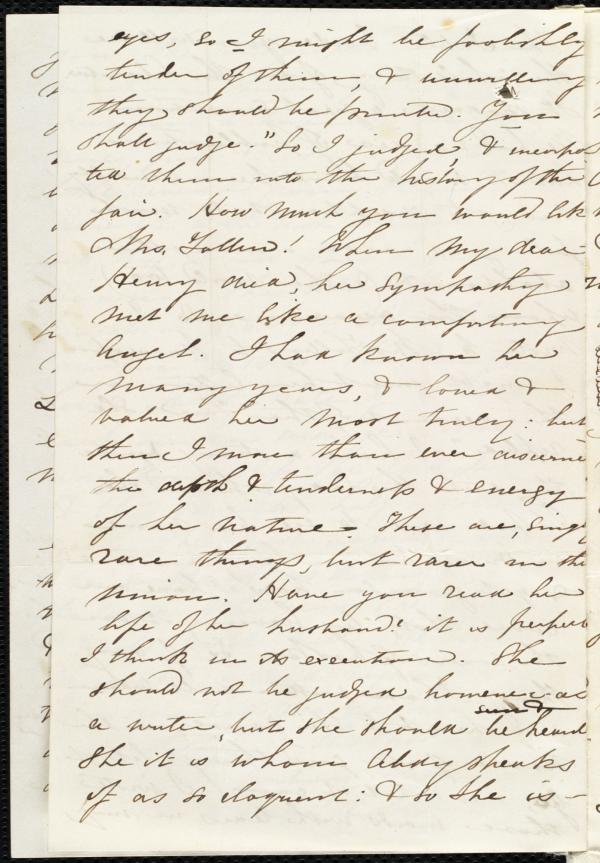 eyes, so I might be foolishly
tender of them, & unwilling
they should be printed. You
shall judge." So I judged, & incorpora
ted them into the history of the
fair. How much you would like
Mrs. Follen! When my dear
Henry died, her sympathy
met me like a comforting
angel. I had known her
many years, & loved &
valued her most truly: but
then I more than ever discerned
the depth & tenderness & energy
of her nature. These are, singly
rare things, but rarer in the
union. Have you read her
life of her husband? it is perfect
I think in its execution. She
should not be judged however as
a writer, but she should be seen & heard.
She it is whom Abdy speaks
of as so eloquent: & so she is—